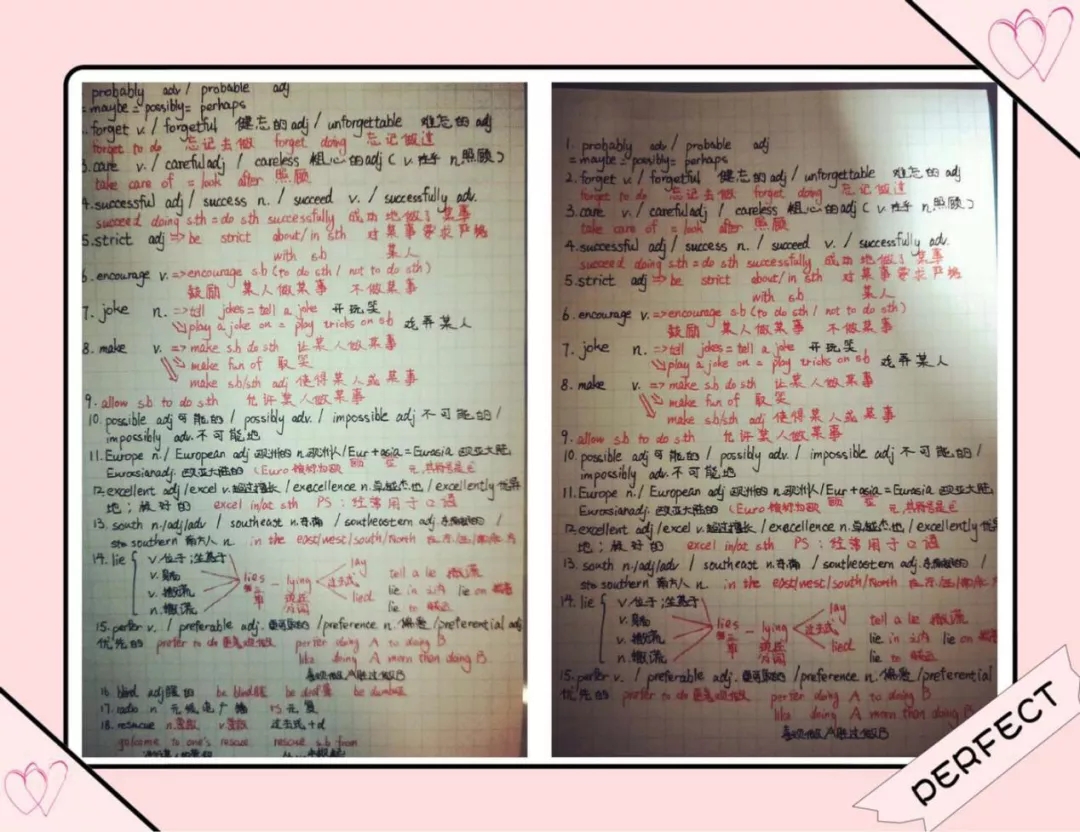 probably adv / probable adj
= maybe = possibly = perhaps
forget v. / forgetful 健忘的 adj / unforgettable 难忘的 adj
forget to do 忘记去做 forget doing 忘记做过
3. care v. / careful adj / careless 粗心的 adj ( v. 在乎 n. 照顾 )
take care of = look after 照顾
4. successful adj / success n. / succeed v. / successfully adv.
succeed doing sth = do sth successfully 成功地做了某事
5. strict adj => be strict about/in sth 对某事要求严格
with sb 某人
6. encourage v. => encourage sb (to do sth / not to do sth)
鼓励 某人做某事 不做某事
7. joke n. => tell jokes = tell a joke 开玩笑
play a joke on = play tricks on sb 戏弄某人
8. make v. => make sb do sth 让某人做某事
make fun of 取笑
make sb/sth adj 使得某人或某事
9. allow sb to do sth 允许某人做某事
10. possible adj 可能的 / possibly adv. / impossible adj 不可能的 /
impossibly adv. 不可能地
11. Europe n. / European adj 欧洲的 n. 欧洲人 / Eur + asia = Eurasia 欧亚大陆
Eurasian adj. 欧亚大陆的 (Euro
12. excellent adj / excel v. 超过擅长 / execellence n. / excellently
地；极好的 excel in/at sth PS：经常用于口语
13. south n./adj/adv / southeast n. 东南 / southeastern adj. 东南部的 /
southern 南方人 n. in the east/west/south/North
14. lie v. 位于；坐落于
v. 躺
v. 撒谎
n. 撒谎
lies — lying 过去式 lay
lied
tell a lie 撒谎
lie in 之内 lie on
lie to
15. perfer v. / preferable adj. 更可取的 / preference n. 偏爱 / preferential adj
优先的 prefer to do 更喜欢做 perfer doing A to doing B
like doing A more than doing B
喜欢做A胜过做B
16. blind adj 瞎的 be blind be deaf be dumb
17. radio n. 无线电广播
18. rescuse n. 营救 v. 营救 过去式 +d
go/come to one's rescue rescue sb from
1. probably adv / probable adj
= maybe = possibly = perhaps
2. forget v. / forgetful 健忘的 adj / unforgettable 难忘的 adj
forget to do 忘记去做 forget doing 忘记做过
3. care v. / careful adj / careless 粗心的 adj ( v. 在乎 n. 照顾 )
take care of = look after 照顾
4. successful adj / success n. / succeed v. / successfully adv.
succeed doing sth = do sth successfully 成功地做了某事
5. strict adj => be strict about/in sth 对某事要求严格
with sb 某人
6. encourage v. => encourage sb (to do sth / not to do sth)
鼓励 某人做某事 不做某事
7. joke n. => tell jokes = tell a joke 开玩笑
play a joke on = play tricks on sb 戏弄某人
8. make v. => make sb do sth 让某人做某事
make fun of 取笑
make sb/sth adj 使得某人或某事
9. allow sb to do sth 允许某人做某事
10. possible adj 可能的 / possibly adv. / impossible adj 不可能的 /
impossibly adv. 不可能地
11. Europe n. / European adj 欧洲的 n. 欧洲人 / Eur + asia = Eurasia 欧亚大陆
Eurasian adj. 欧亚大陆的 (Euro
12. excellent adj / excel v. 超过擅长 / execellence n. / excellently
地；极好的 excel in/at sth PS：经常用于口语
13. south n./adj/adv / southeast n. 东南 / southeastern adj. 东南部的 /
southern 南方人 n. in the east/west/south/North
14. lie v. 位于；坐落于
v. 躺
v. 撒谎
n. 撒谎
lies — lying 过去式 lay
lied
tell a lie 撒谎
lie in 之内 lie on
lie to
15. perfer v. / preferable adj. 更可取的 / preference n. 偏爱 / preferential
优先的 prefer to do 更喜欢做 perfer doing A to doing B
like doing A more than doing B
喜欢做A胜过做B
PERFECT